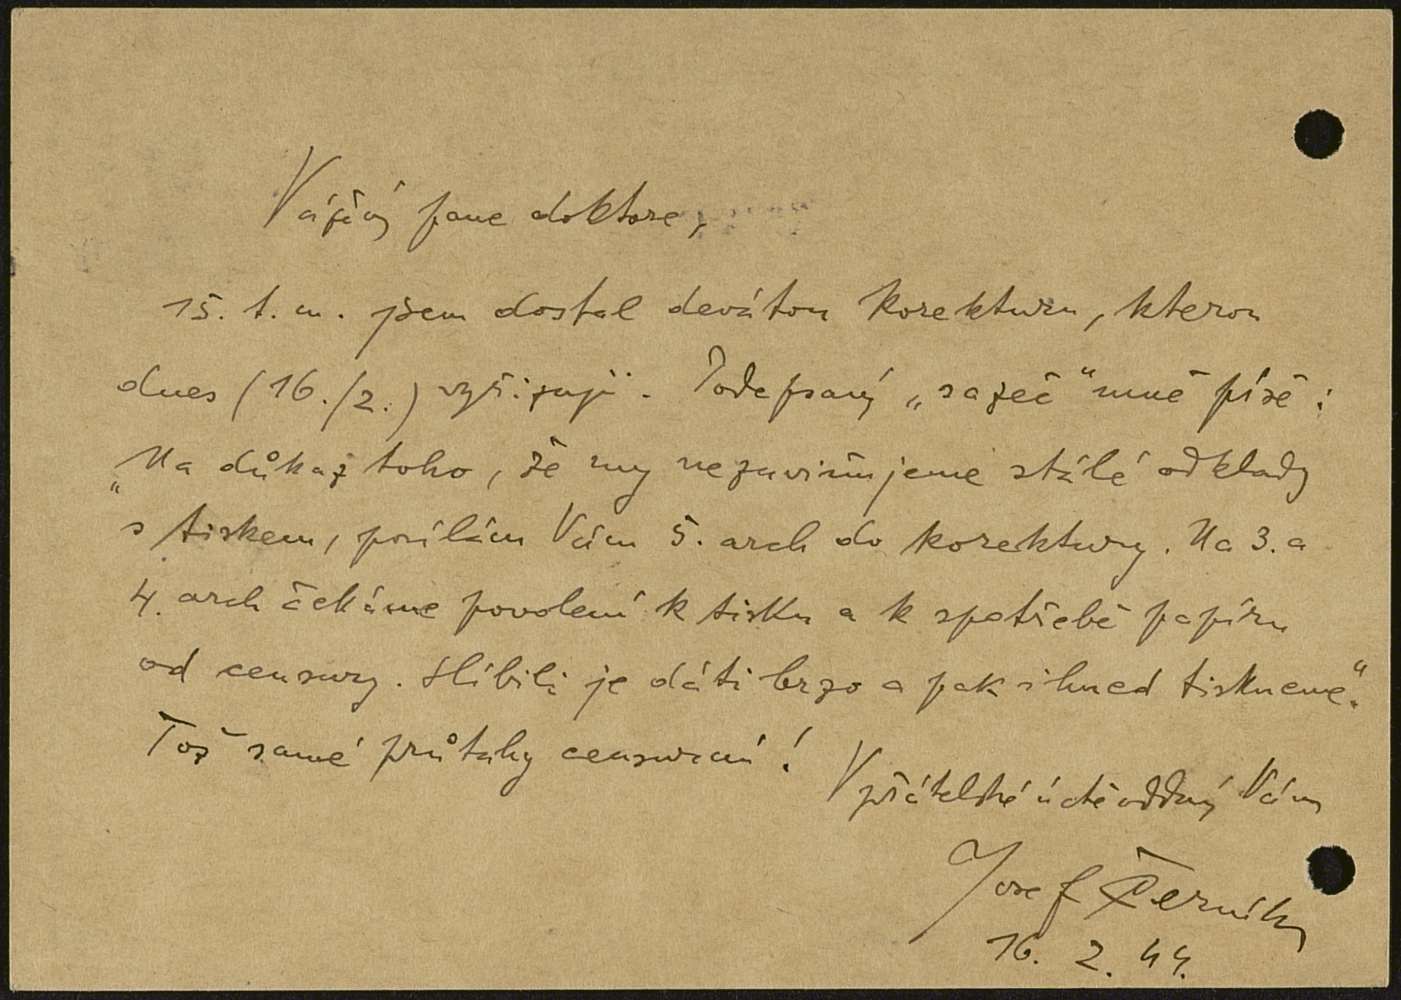 Vážený pane doktore,
15. t. m. jsem dostal devátou korekturu, kterou
dnes (16./2.) vyřizuji. Podepsaný „sazeč" mně píše:
„Na důkaz toho, že my nezaviňujeme stálé odklady
s tiskem, posílám Vám 5. arch do korektury. Na 3. a
4. arch čekáme povolení k tisku a k spotřebě papíru
od censury. Slíbili je dáti brzo a pak ihned tiskneme".
Tož samé průtahy censurní!
V přátelské úctě oddaný Vám
Josef Černík
16. 2. 44.